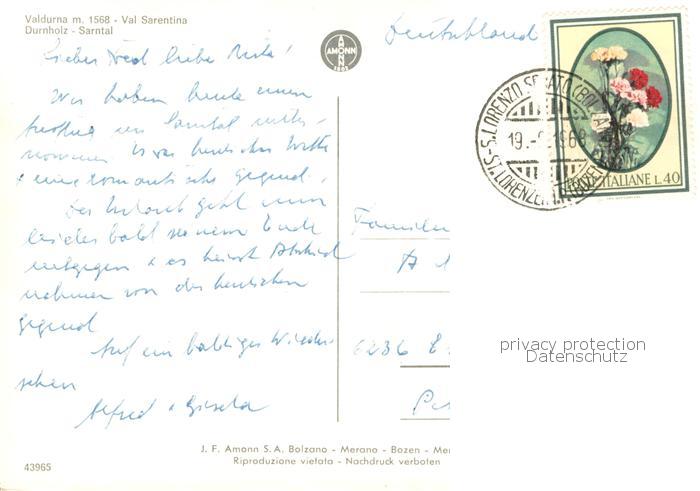 Valdurna m. 1568 - Val Sarentina
Durnholz - Sarntal
Lieber Fred liebe Rita!
Wir haben heute einen
ins Sarntal unter-
nommen. Es war herrliches Wetter
+ eine romantische Gegend.
Der Urlaub geht nun
leider bald seinem Ende
entgegen + es heisst Abschied
nehmen von der herrlichen
Gegend
Auf ein baldiges Wieder-
sehen
Alfred + Gisela
AMONN
AMONN
1802
Deutschland
S. LORENZO SEBATO (BOLZANO)
19.-9.1968
ST. LORENZEN (BOZEN)
POSTE ITALIANE L.40
Familie
A
6236 E
privacy protection
Datenschutz
J. F. Amonn S.A. Bolzano - Merano - Bozen - Mer
Riproduzione vietata - Nachdruck verboten
43965